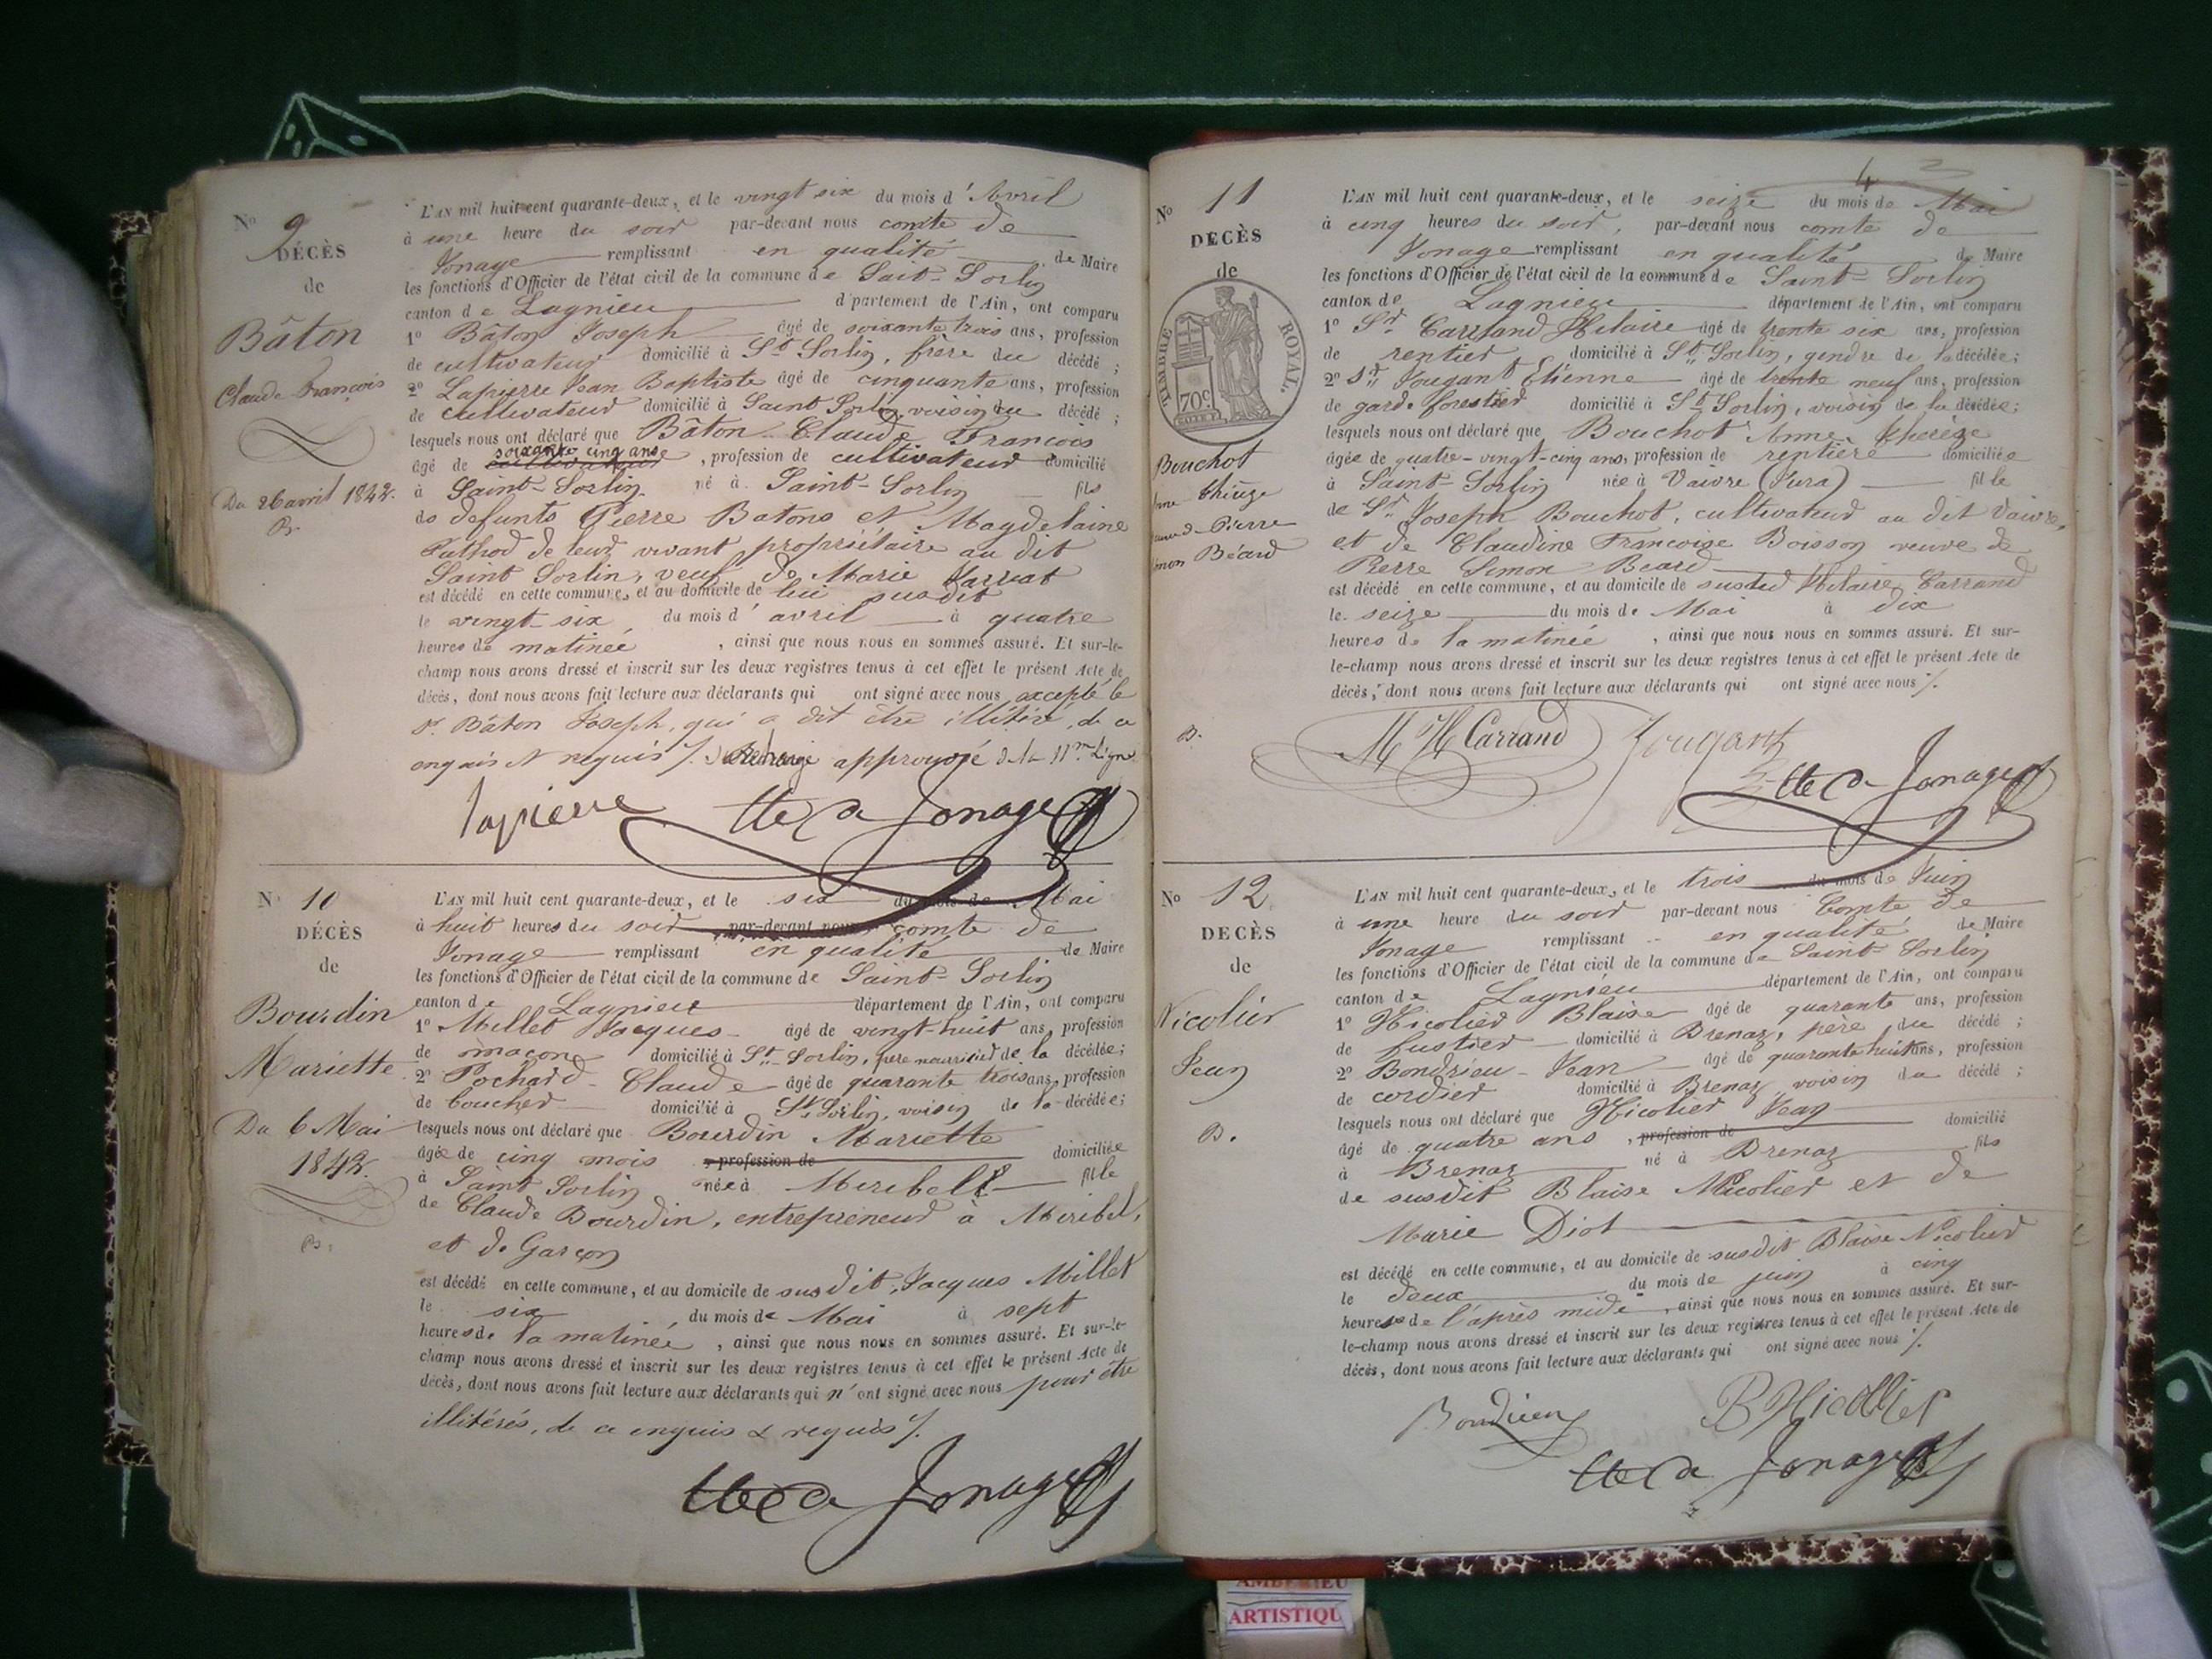 No 9
DÉCÈS
de
Bâton
Claude François
Du 26 avril 1842.
B.
L'AN mil huit cent quarante-deux, et le vingt six du mois d'Avril
à une heure du soir par-devant nous comte de
Jonage remplissant en qualité de Maire
les fonctions d'Officier de l'état civil de la commune de Sait-Sorlin
canton de Lagnieu département de l'Ain, ont comparu
1° Bâton Joseph âgé de soixante trois ans, profession
de cultivateur domicilié à St Sorlin, frère du décédé ;
2° Lapierre Jean Baptiste âgé de cinquante ans, profession
de cultivateur domicilié à Saint Sorlin voisin du décédé ;
lesquels nous ont déclaré que Bâton Claude François
âgé de soixante cinq ans, profession de cultivateur domicilié
à Saint-Sorlin né à Saint-Sorlin fils
de defunts Pierre Batons et Magdelaine
de leur vivant propriétaire au dit
Saint Sorlin, veuf de Marie Jarriat
est décédé en cette commune, et au domicile de lui susdit
le vingt six du mois d'avril à quatre
heures de matinée, ainsi que nous nous en sommes assuré. Et sur-le-
champ nous avons dressé et inscrit sur les deux registres tenus à cet effet le présent Acte de
décès, dont nous avons fait lecture aux déclarants qui ont signé avec nous excepté le
Sr Bâton Joseph, qui a dit être illitéré, de ce
enquis et requis ./. approuvé de la 11me Ligne
Lapierre Cte de Jonage
No 10
DÉCÈS
de
Bourdin
Mariette
Du 6 Mai
1842.
B.
L'AN mil huit cent quarante-deux, et le six du mois de Mai
à huit heures du soir par-devant nous comte de
Jonage remplissant en qualité de Maire
les fonctions d'Officier de l'état civil de la commune de Saint-Sorlin
canton de Lagnieu département de l'Ain, ont comparu
1° Millet Jacques âgé de vingt-huit ans, profession
de maçon domicilié à St Sorlin, père nourricier de la décédée;
2° Pochard Claude âgé de quarante trois ans, profession
de boucher domicilié à St Sorlin, voisin de la décédée;
lesquels nous ont déclaré que Bourdin Mariette
âgée de cinq mois, profession de domiciliée
à Saint Sorlin née à Meribell fille
de Claude Bourdin, entrepreneur à Meribel,
et de Garçon
est décédé en cette commune, et au domicile de susdit, Jacques Millet
le six du mois de Mai à sept
heures de la matinée, ainsi que nous nous en sommes assuré. Et sur-le-
champ nous avons dressé et inscrit sur les deux registres tenus à cet effet le présent Acte de
décès, dont nous avons fait lecture aux déclarants qui n'ont signé avec nous pour être
illitérés, de ce enquis & requis ./.
Cte de Jonage
4
No 11
DECÈS
de
TIMBRE ROYAL.
70c
Bouchot
Anne Thérèze
Pierre
Simon Béard
B.
L'AN mil huit cent quarante-deux, et le seize du mois de Mai
à cinq heures du soir, par-devant nous comte de
Jonage remplissant en qualité de Maire
les fonctions d'Officier de l'état civil de la commune de Saint-Sorlin
canton de Lagnieu département de l'Ain, ont comparu
1° Sr Carrand Hilaire âgé de trente six ans, profession
de rentier domicilié à St Sorlin, gendre de la décédée;
2° Sr Jougant Etienne âgé de trente neuf ans, profession
de garde forestier domicilié à St Sorlin, voisin de la décédée;
lesquels nous ont déclaré que Bouchot Anne Therèze
âgée de quatre-vingt-cinq ans, profession de rentière domiciliée
à Saint-Sorlin née à Vaivre (Jura) fille
de Sr Joseph Bouchot, cultivateur au dit Vaivre,
et de Claudine Francoise Boisson veuve de
Pierre Simon Beard
est décédé en cette commune, et au domicile de susdit Hilaire Carrand
le seize du mois de Mai à dix
heures de la matinée, ainsi que nous nous en sommes assuré. Et sur-
le-champ nous avons dressé et inscrit sur les deux registres tenus à cet effet le présent Acte de
décès, dont nous avons fait lecture aux déclarants qui ont signé avec nous ./.
M H Carrand Jougant
Cte de Jonage
No 12
DECÈS
de
Nicolier
Jean
B.
L'AN mil huit cent quarante-deux, et le trois du mois de Juin
à une heure du soir par-devant nous Comte de
Jonage remplissant en qualité de Maire
les fonctions d'Officier de l'état civil de la commune de Saint-Sorlin
canton de Lagnieu département de l'Ain, ont comparu
1° Nicolier Blaise âgé de quarante ans, profession
de fustier domicilié à Brenaz, père du décédé ;
2° Bondrieu Jean âgé de quarante huit ans, profession
de cordier domicilié à Brenaz voisin du décédé ;
lesquels nous ont déclaré que Nicolier Jean
âgé de quatre ans, profession de domicilié
à Brenaz né à Brenaz fils
de susdit Blaise Nicolier et de
Marie Diot
est décédé en cette commune, et au domicile de susdit Blaise Nicolier
le deux du mois de juin à cinq
heures de l'après midi, ainsi que nous nous en sommes assuré. Et sur-
le-champ nous avons dressé et inscrit sur les deux registres tenus à cet effet le présent Acte de
décès, dont nous avons fait lecture aux déclarants qui ont signé avec nous ./.
Bondrieu B Nicollier
Cte de Jonage
AMBERIEU
ARTISTIQU